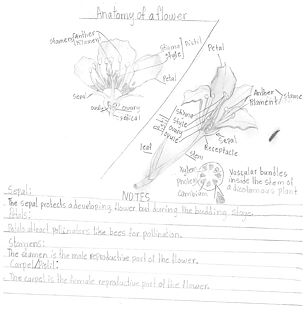 Anatomy of a flower
stamen [ Anther
Filament
stigma
style ] Pistil
Petal
Petal
sepal
ovule
ovary
Anther
Filament ] stamen
stigma
style
ovary
ovule
Sepal
Receptacle
leaf
stem
xylem
phloem
cambium
Vascular bundles
inside the stem of
a dicotamous plant
NOTES
Sepal:
The sepal protects a developing flower bud during the budding stage.
Petals:
Petals attract pollinators like bees for pollination.
Stamens:
The stamen is the male reproductive part of the flower.
Carpel/Pistil:
The carpel is the female reproductive part of the flower.